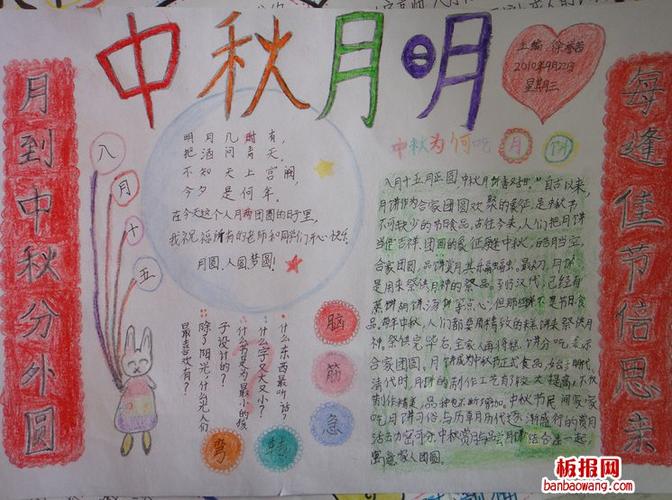 中秋月明
主编
2010年9月22日
星期三
月到中秋分外圆
每逢佳节倍思来
八
月
十
五
明月几时有，
把酒问青天。
不知天上宫阙，
今夕是何年。
在今天这个人月两团圆的日子里，
我祝福所有的老师和同学们开心快乐
月圆，人圆梦圆！
中秋为何吃月饼
八月十五月正圆，中秋月饼香又甜"自古以来，
月饼作为合家团圆欢聚的象征，是为秋节
不可缺少的节日食品。古往今来，人们把月饼
当作吉祥、团圆的象征。每逢中秋，皓月当空，
合家团圆，品饼赏月其乐融融。最初，月饼
是用来祭供月神的祭品。
蒸饼
但那些饼不是节日食
品，每年中秋，人们都要用精致的糕饼来祭供月
神。祭供完毕后，全家人再将糕、饼分吃，表示
合家团圆，月饼成为中秋节正式食品，始于明代，
清代时，月饼的制作工艺有较大提高，不仅
制作精美，品种也不断增加。中秋节民间家家
吃月饼习俗与历朝月历代逐渐盛行的赏月
活动
寓意家人团圆。
脑
筋
急
转
弯
什么东西最听话？
什么字又大又小？
什么书是为最小的孩
子设计的？
除了阳光，什么光人们
最喜欢有？
板报网
banbaowang.com